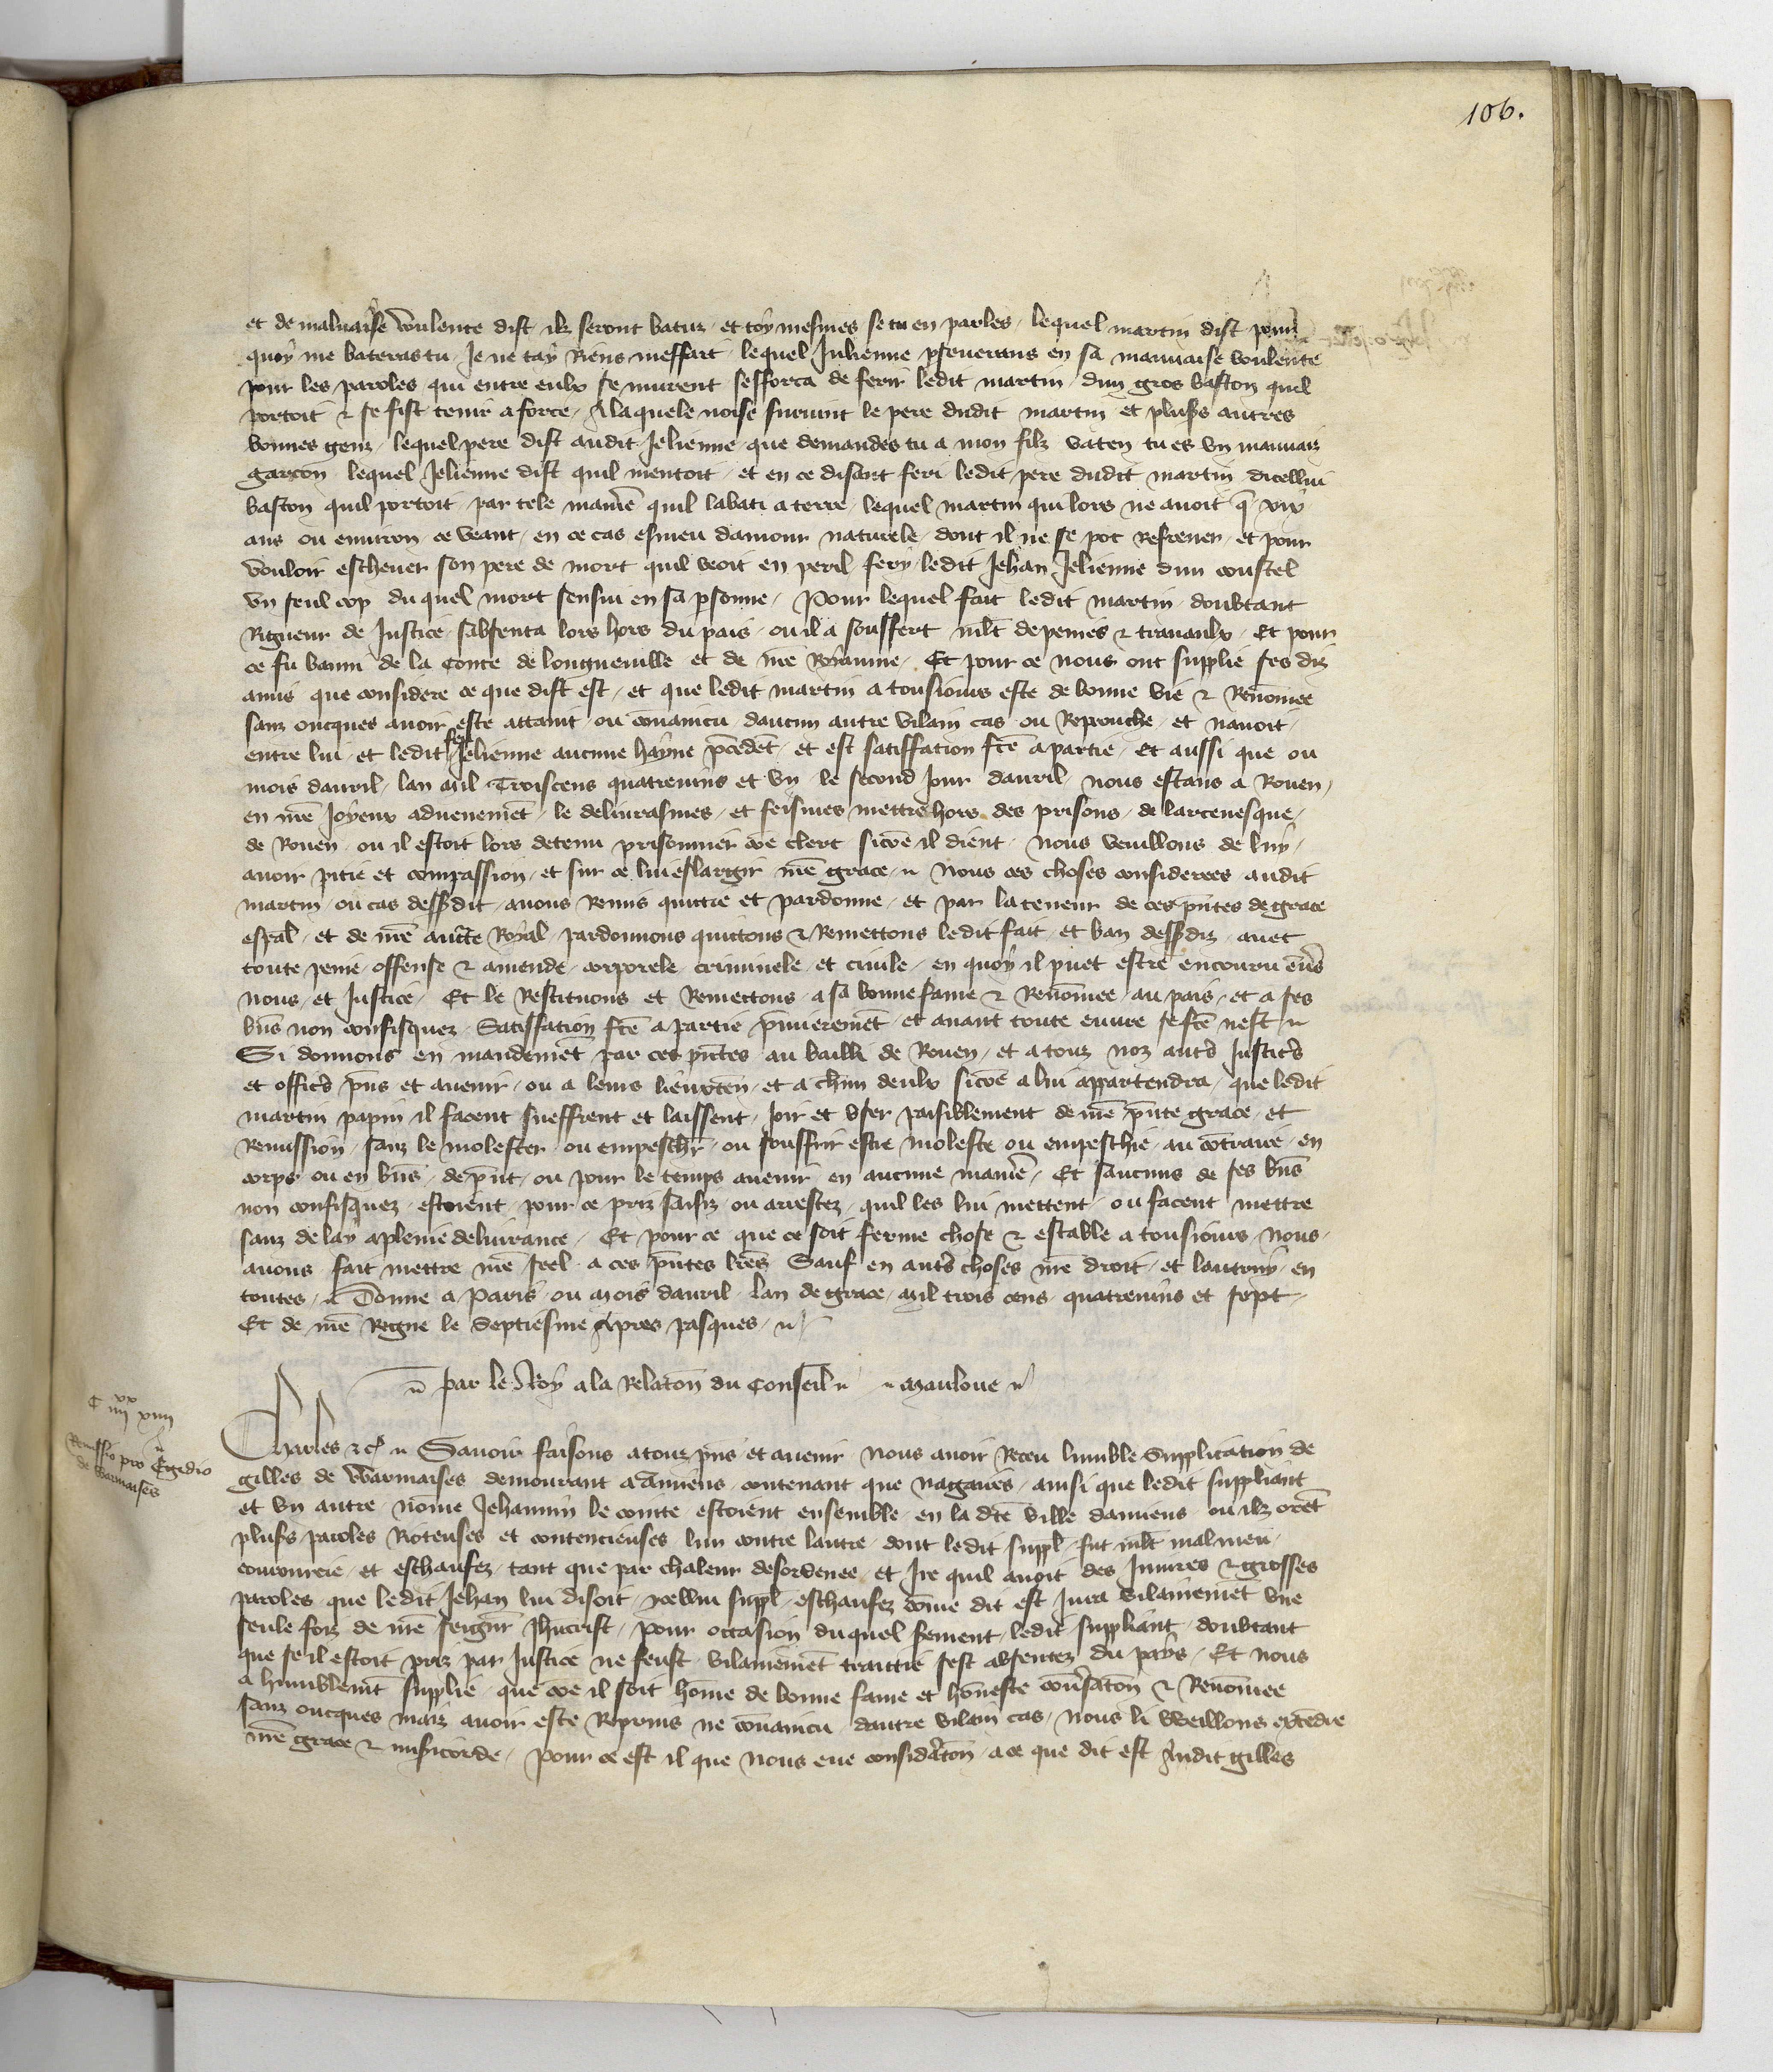 106.
et de malvaise voulente dist ilz seront batuz et toy mesmes se tu en parles lequel martin dist pour
quoy me bateras tu Je ne tay Riens meffait lequel Julienne pseverans en sa mauvaise voulente
pour les paroles qui entre eulx se murent sefforca de ferir ledit martin dun gros baston quil
portoit & se fist tenir a force A laquele noise survint le pere dudit martin et pluss autres
bonnes genz lequel pere dist audit Jelienne que demandes tu a mon filz vaten tu es un mauvaiz
garcon lequel Jelienne dist quil mentoit et en ce disant feri ledit pere dudit martin dicellui
baston quil portoit par tele manie quil labati a terre lequel martin qui lors ne avoit q xix
ans ou environ ce veant en ce cas esmeu damour naturele dont il ne se pot Refrener et pour
vouloir eschever son pere de mort quil veoit en peril fery ledit Jehan Jelienne dun coustel
un seul cop du quel mort sensui en sa psonne Pour lequel fait ledit martin doubtant
Rigueur de Justice sabsenta lors hors du pais ou il a souffert mlt de peines & travaulx Et pour
ce fu banni de la Conte de longueville et de nre Royaume Et pour ce nous ont supplie ses diz
amis que considere ce que dist est et que ledit martin a tousiours este de bonne vie & Renomee
sanz oncques avoir este attaint ou convaincu daucun autre vilain cas ou Reprouche et navoit
entre lui et ledit feu Jelienne aucune hayne pcedent et est satiffation fce a partie et aussi que ou
mois davril lan mil Troiscens quatrevins et un le second jour davril nous estans a Rouen
en nre Joyeux advenement le delivrasmes et feismes mettre hors des prisons de larcevesque
de Rouen ou il estoit lors detenu prisonnier coe clerc sicoe il dient Nous veuillons de luy
avoir pitie et compassion et sur ce lui eslargir nre grace Nous ces choses considerees audit
martin ou cas dessdit avons Remis quittie et pardonne et par la teneur de ces pntes de grace
espal et de nre aucte Royal pardonnons quittons & Remettons ledit fait et ban dessdiz avec
toute peine offense & amende corporele criminele et civile en quoy il puet estre encouru envs
nous et Justice Et le Restituons et Remettons a sa bonne fame & Renomee au pais et a ses
bns non confisquez Satisfation fce a partie pmierement et avant toute euvre se fce nest
Si donnons en mandement par ces pntes au bailli de Rouen et a touz noz autrs Justicrs
et officrs pns et avenir ou a leurs lieuxten et a chun deulx sicoe a lui appartendra que ledit
martin papin il facent sueffrent et laissent joir et user paisiblement de nre pnte grace et
Remission sanz le molester ou empeschr ou souffrir estre moleste ou empeschie au contraire en
corps ou en bns de pnt ou pour le temps avenir en aucune manie Et saucuns de ses bns
non confisquez estoient pour ce priz saisiz ou arrestez quil les lui mettent ou facent mettre
sanz delay a pleine delivrance Et pour ce que ce soit ferme chose & estable a tousiours Nous
avons fait mettre nre seel a ces pntes lres Sauf en autrs choses nre droit et lautruy en
toutes Donne a Paris ou mois davril lan de grace mil trois cens quatrevins et sept
Et de nre Regne le Septiesme apres pasques
par le Roy a la Relaton du Conseil Mauloue
C IIII xx XIIII
Remissio pro Egidio
de Warmaises
Charles &c Savoir faisons a touz pns et avenir Nous avoir Receu lumble Supplication de
gilles de Warmaises demourant a Amiens contenant que nagaires ainsi que ledit suppliant
et un autre nome Jehannin le conte estoient ensemble en la dte ville damiens ou ilz orent
pluss paroles Rioteuses et contencieuses lun contre lautre dont ledit suppl fut mlt mal meu
courroucie et eschaufez tant que par chaleur desordenee et Ire quil avoit des Injures & grosses
paroles que ledit Jehan lui disoit ycellui suppl eschaufez come dit est Jura vilainemet une
seule foiz de nre seignr Jhucrist pour occasion duquel serment ledit suppliant doubtant
que se il estoit priz par Justice ne feust vilainement traittie sest absentez du pays Et nous
a humblemt supplie que coe il soit home de bonne fame et honeste convsaton & Renomee
sanz oncques maiz avoir este Reprins ne convaincu dautre vilain cas nous li vueillons extendre
nre grace & misicorde Pour ce est il que nous eue considaton a ce que dit est Audit gilles